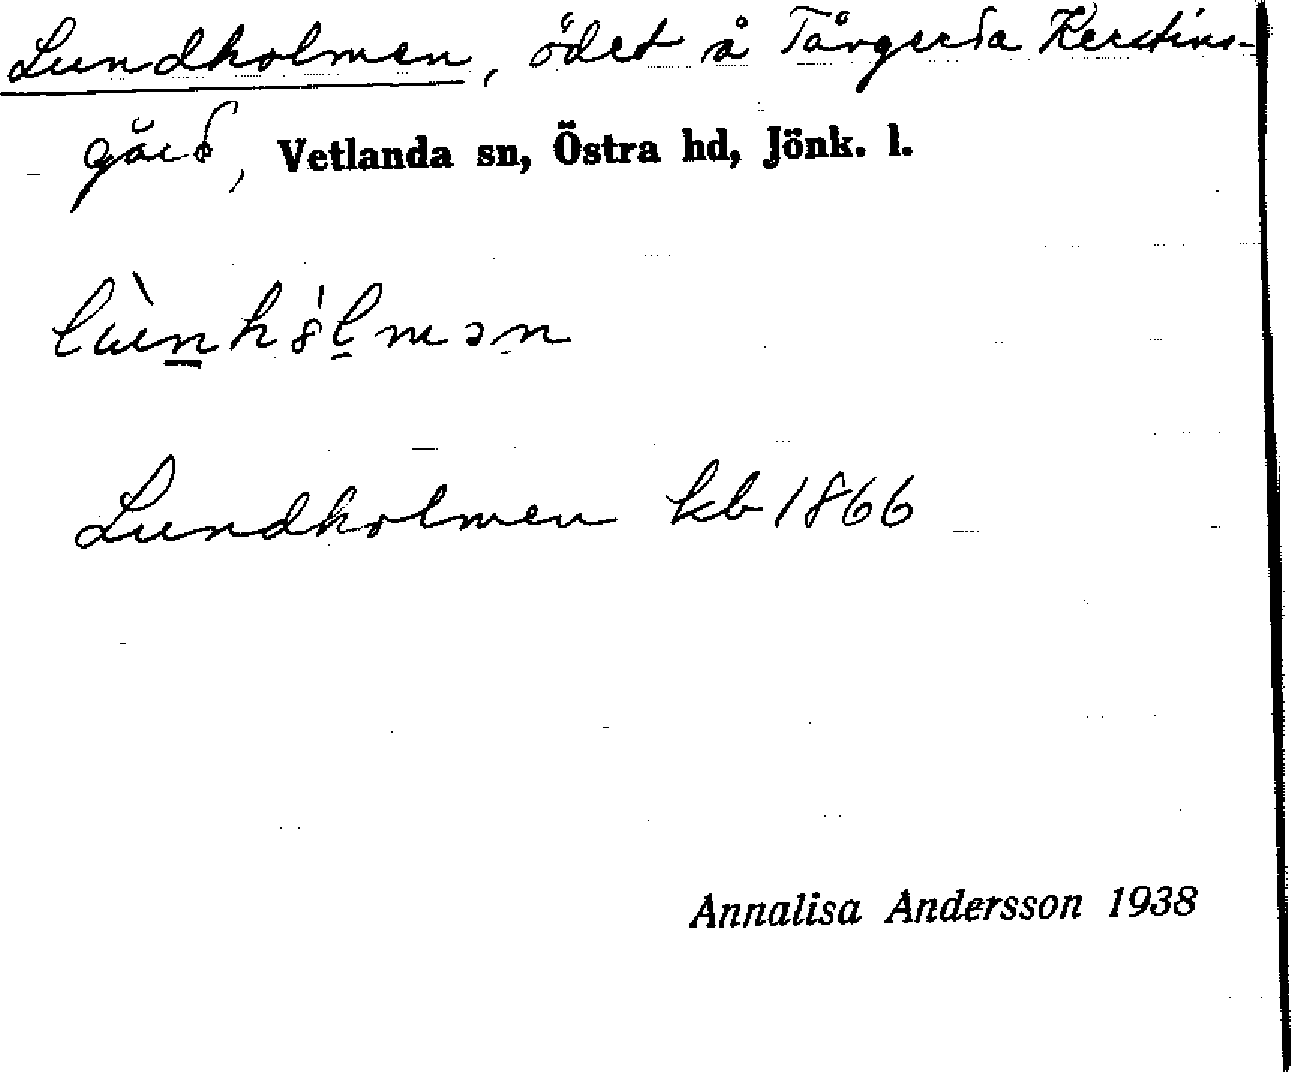 Lundholmen, ödet å Tångerda Kerstins-
gård, Vetlanda sn, Östra hd, Jönk. l.
Lundholmen kb 1866
Annalisa Andersson 1938